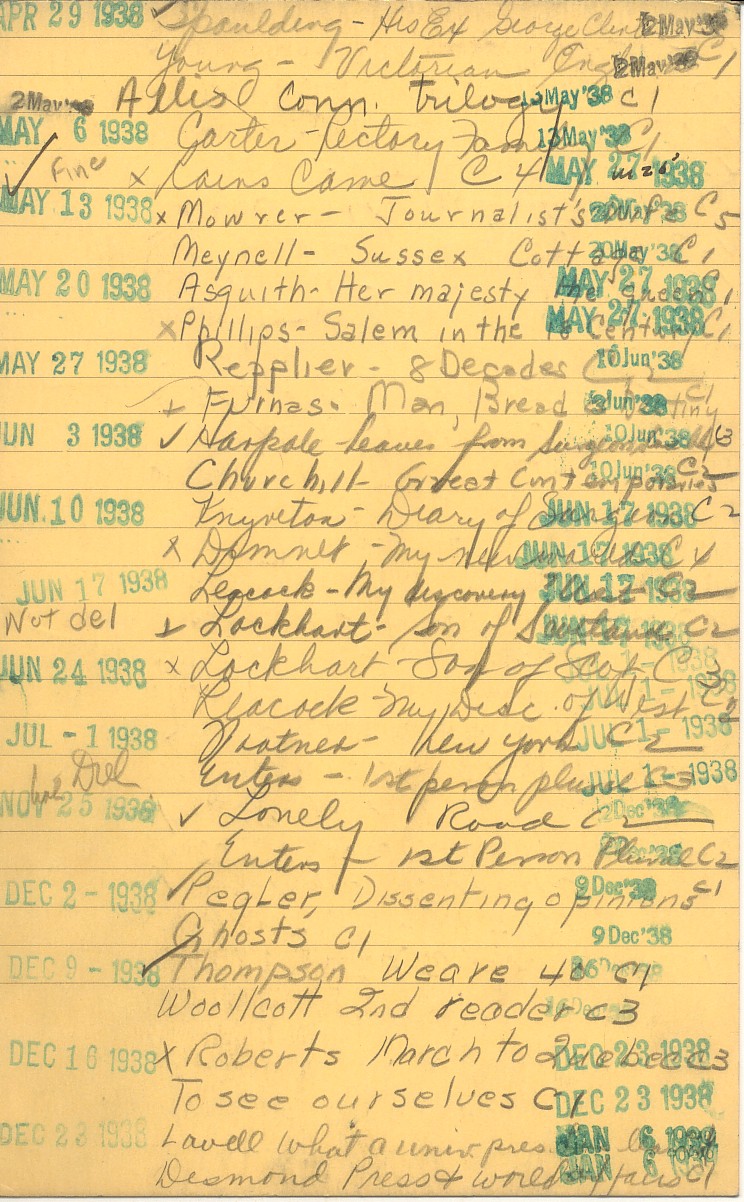 APR 29 1938 ✓ Spaulding - His Ex George Clinton 2 May '38
Young - Victorian England 2 May '38 C1
2 May '38 Allis Conn. trilogy 13 May '38 C1
MAY 6 1938 Carter - Rectory Family 13 May '38 C1
✓ Fine x Rains Came C4 MAY 27 1938
MAY 13 1938 x Mowrer - Journalist's Wife 20 May '38 C5
Meynell - Sussex Cottage 20 May '38 C1
MAY 20 1938 Asquith - Her majesty the Queen MAY 27 1938 C1
x Phillips - Salem in the 18 Century MAY 27 1938 C1
MAY 27 1938 Repplier - 8 Decades C2 10 Jun '38
x Furnas - Man, Bread & Destiny Jun '38 C1
JUN 3 1938 ✓ Harpole - leaves from Surgeon's 10 Jun '38
Churchill - Great Contemporaries 10 Jun '38 C2
JUN. 10 1938 Knyveton - Diary of Surgeon JUN 17 1938 C2
x Dimnet - My new world JUN 17 1938 C4
JUN 17 1938 Leacock - My discovery West JUN 17 1938 C2
Not del x Lockhart - Son of Scotland JUN 17 1938 C2
JUN 24 1938 x Lockhart - Son of Scot C3 JUL - 1 1938
Leacock - My Disc. of West C2 JUL - 1 1938
JUL - 1 1938 New York C2 JUL - 1 1938
Enters - 1st person plural C3 JUL - 1 1938
NOV 25 1938 ✓ Lonely Road C2 2 Dec '38
Enters - 1st Person Plural C2 Dec '38
DEC 2 - 1938 ✓ Pegler, Dissenting opinions 9 Dec '38 C1
Ghosts C1 9 Dec '38
DEC 9 - 1938 ✓ Thompson Weare 40 16 Dec '38 C1
Woollcott 2nd reader 16 Dec '38 C3
DEC 16 1938 x Roberts March to Quebec DEC 23 1938 C3
To see ourselves C1 DEC 23 1938
DEC 23 1938 Lavell What a univ. pres. JAN 6 1939
Desmond Press & world affairs JAN 6 1939 C1